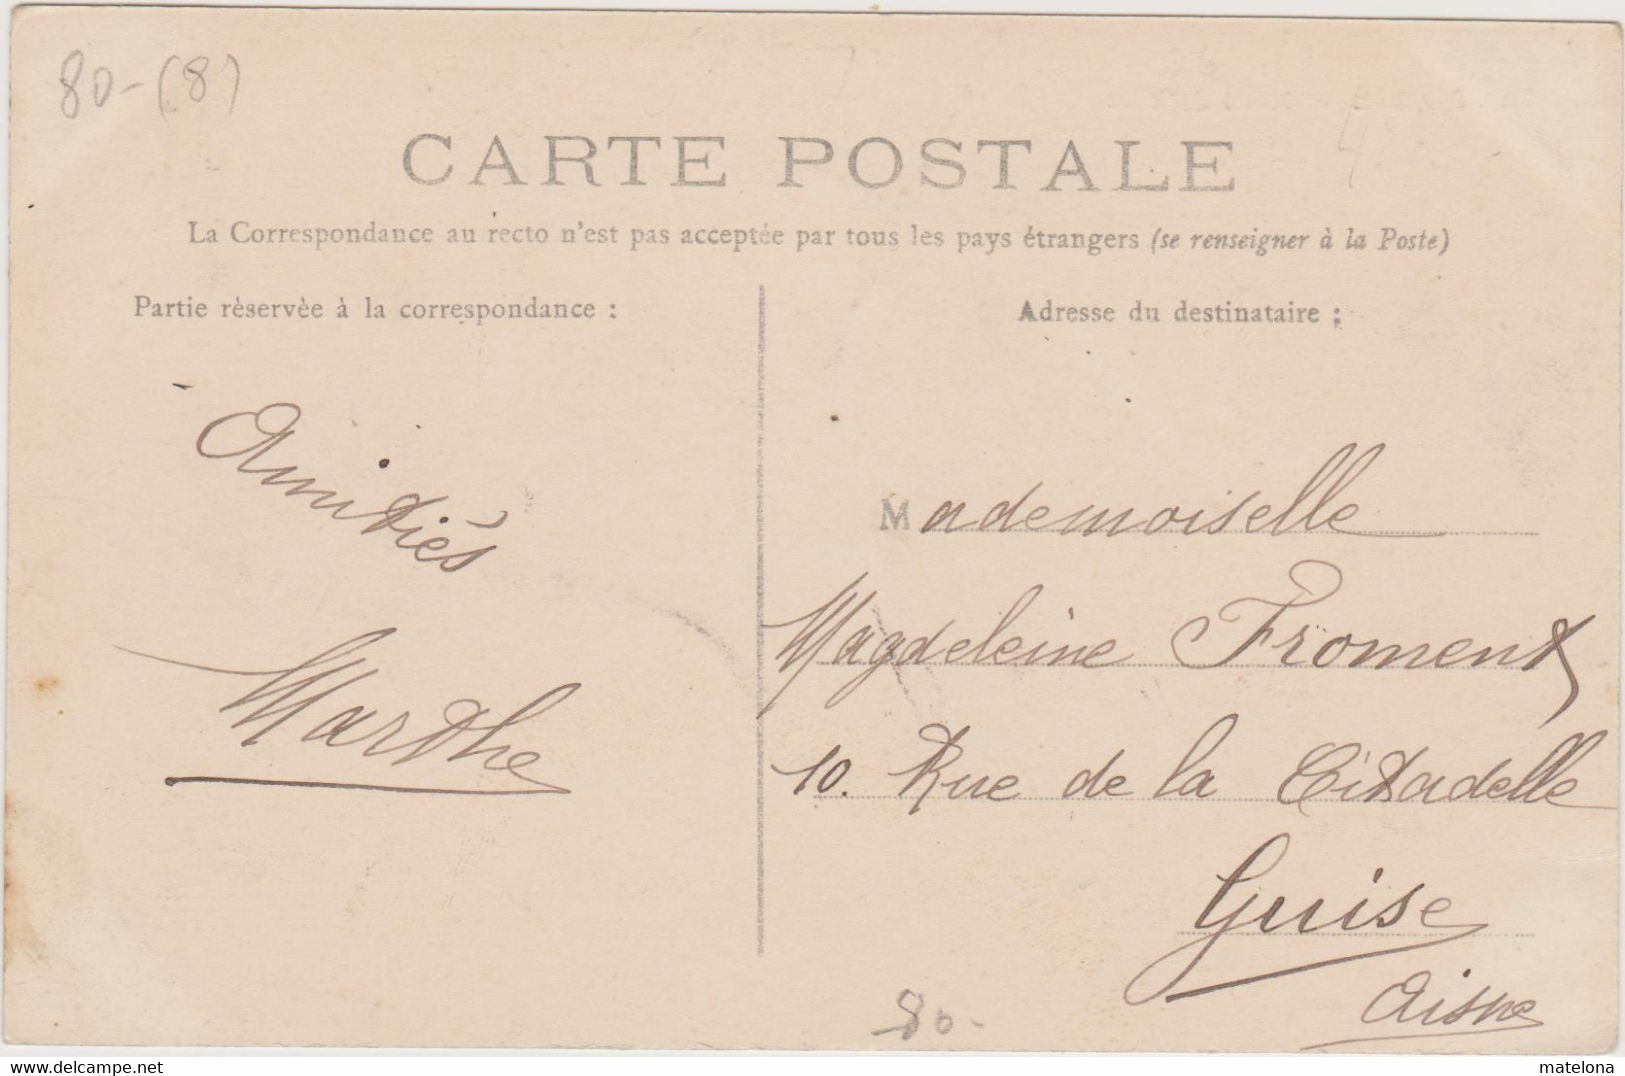 80-(8)
CARTE POSTALE
La Correspondance au recto n'est pas acceptée par tous les pays étrangers (se renseigner à la Poste)
Partie rèservèe à la correspondance :
Amitiés
Marthe
Adresse du destinataire :
Mademoiselle
Magdeleine Froment
10. Rue de la Citadelle
Guise
Aisne
80-
www.delcampe.net
matelona